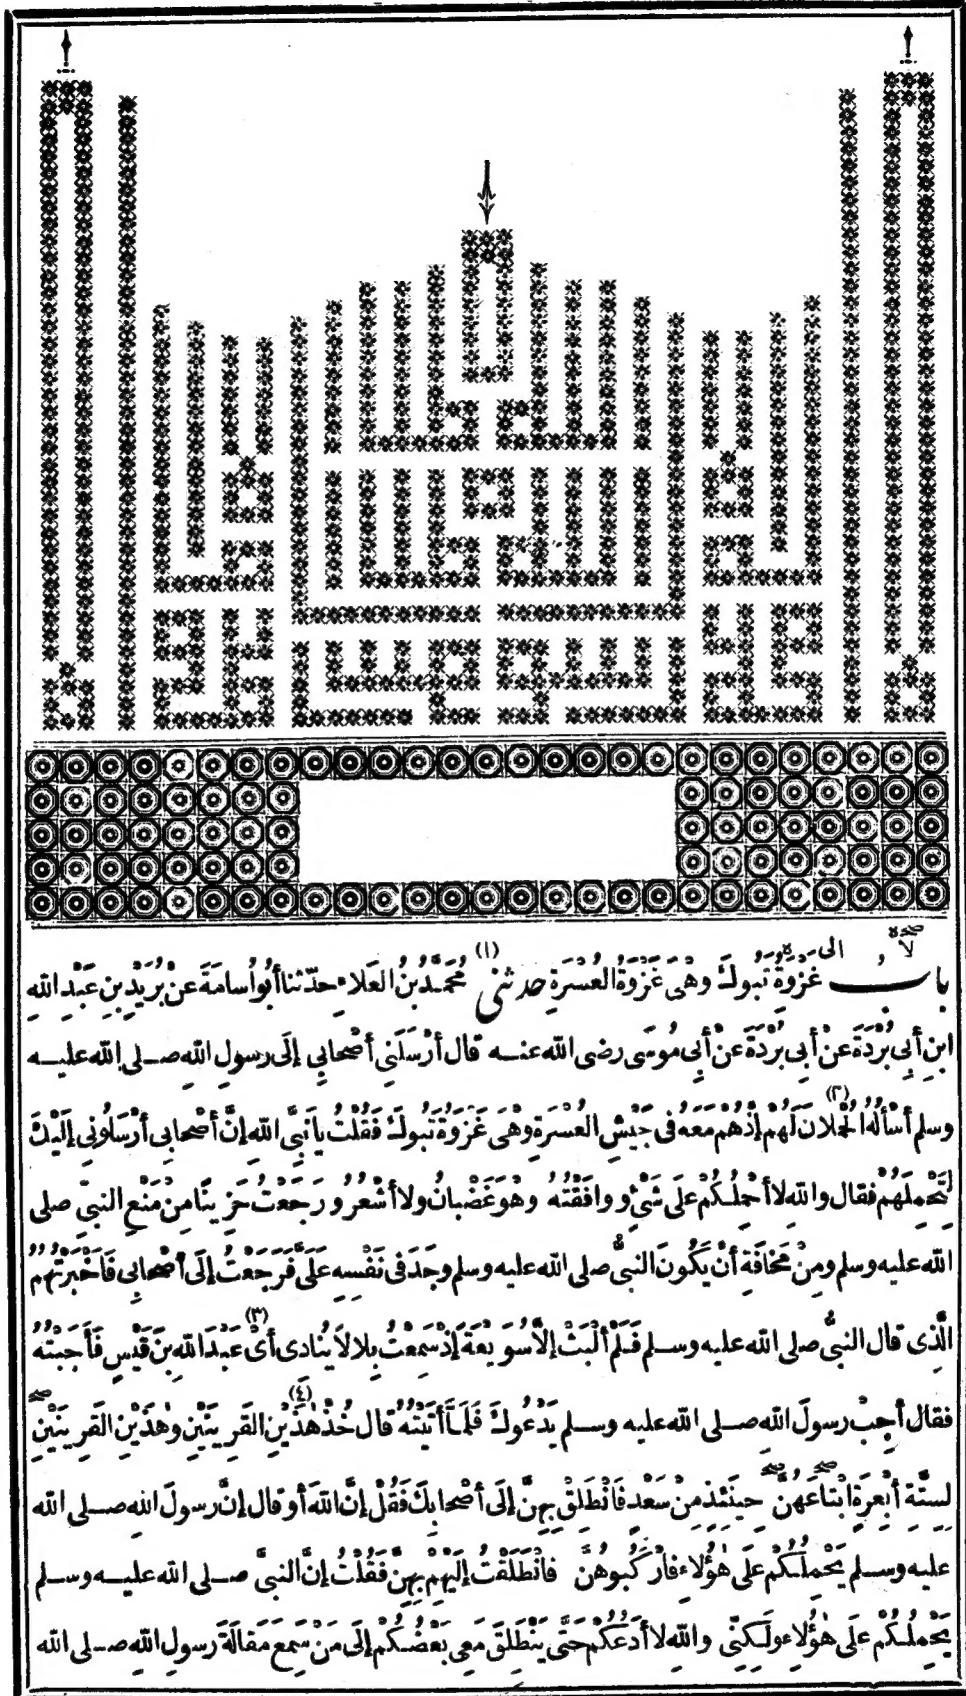 باب غَزْوَةُ تَبُوكَ وهْىَ غَزْوَةُ العُسْرَةِ حدثنى (١) مُحَمَّدُ بْنُ العَلَاءِ حدّثنا أَبُو أُسامَةَ عَنْ بُرَيْدِ بنِ عَبْدِ الله
ابنِ أَبِى بُرْدَةَ عَنْ أَبِى بُرْدَةَ عَنْ أَبِى مُوسَى رضى الله عنه قال أَرْسَلَنِى أَصْحابِى إِلَى رسولِ اللهِ صلى الله عليه
وسلم أَسْأَلُهُ (٢) الحُمْلانَ لَهُمْ إِذْ هُمْ مَعَهُ فى جَيْشِ العُسْرَةِ وهْىَ غَزْوَةُ تَبُوكَ فَقُلْتُ يا نَبِىَّ اللهِ إِنَّ أَصْحابِى أَرْسَلُونِى إِلَيْكَ
لِتَحْمِلَهُمْ فقال واللهِ لا أَحْمِلُكُمْ عَلَى شَىْءٍ ووافَقْتُهُ وهُوَ غَضْبانُ ولا أَشْعُرُ ورَجَعْتُ حَزِينًا مِنْ مَنْعِ النبىِّ صلى
الله عليه وسلم ومِنْ مَخافَةِ أَنْ يَكُونَ النبىُّ صلى الله عليه وسلم وجَدَ فى نَفْسِهِ عَلَىَّ فَرَجَعْتُ إِلَى أَصْحابِى فَأَخْبَرْتُهُمُ
الَّذِى قال النبىُّ صلى الله عليه وسلم فَلَمْ أَلْبَثْ إِلَّا سُوَيْعَةً إِذْ سَمِعْتُ بِلالًا يُنادِى أَىْ (٣) عَبْدَ اللهِ بنَ قَيْسٍ فَأَجَبْتُهُ
فقال أَجِبْ رسولَ اللهِ صلى الله عليه وسلم يَدْعُوكَ فَلَمَّا أَتَيْتُهُ قال خُذْ (٤) هٰذَيْنِ القَرِينَيْنِ وهٰذَيْنِ القَرِينَيْنِ
لِسِتَّةِ أَبْعِرَةٍ ابْتاعَهُنَّ حِينَئِذٍ مِنْ سَعْدٍ فَانْطَلِقْ بِهِنَّ إِلَى أَصْحابِكَ فَقُلْ إِنَّ اللهَ أو قال إِنَّ رسولَ اللهِ صلى الله
عليه وسلم يَحْمِلُكُمْ عَلَى هٰؤُلاءِ فارْكَبُوهُنَّ فانْطَلَقْتُ إِلَيْهِمْ بِهِنَّ فَقُلْتُ إِنَّ النبىَّ صلى الله عليه وسلم
يَحْمِلُكُمْ عَلَى هٰؤُلاءِ ولَكِنِّى واللهِ لا أَدَعُكُمْ حَتَّى يَنْطَلِقَ مَعِى بَعْضُكُمْ إِلَى مَنْ سَمِعَ مَقالَةَ رسولِ اللهِ صلى الله